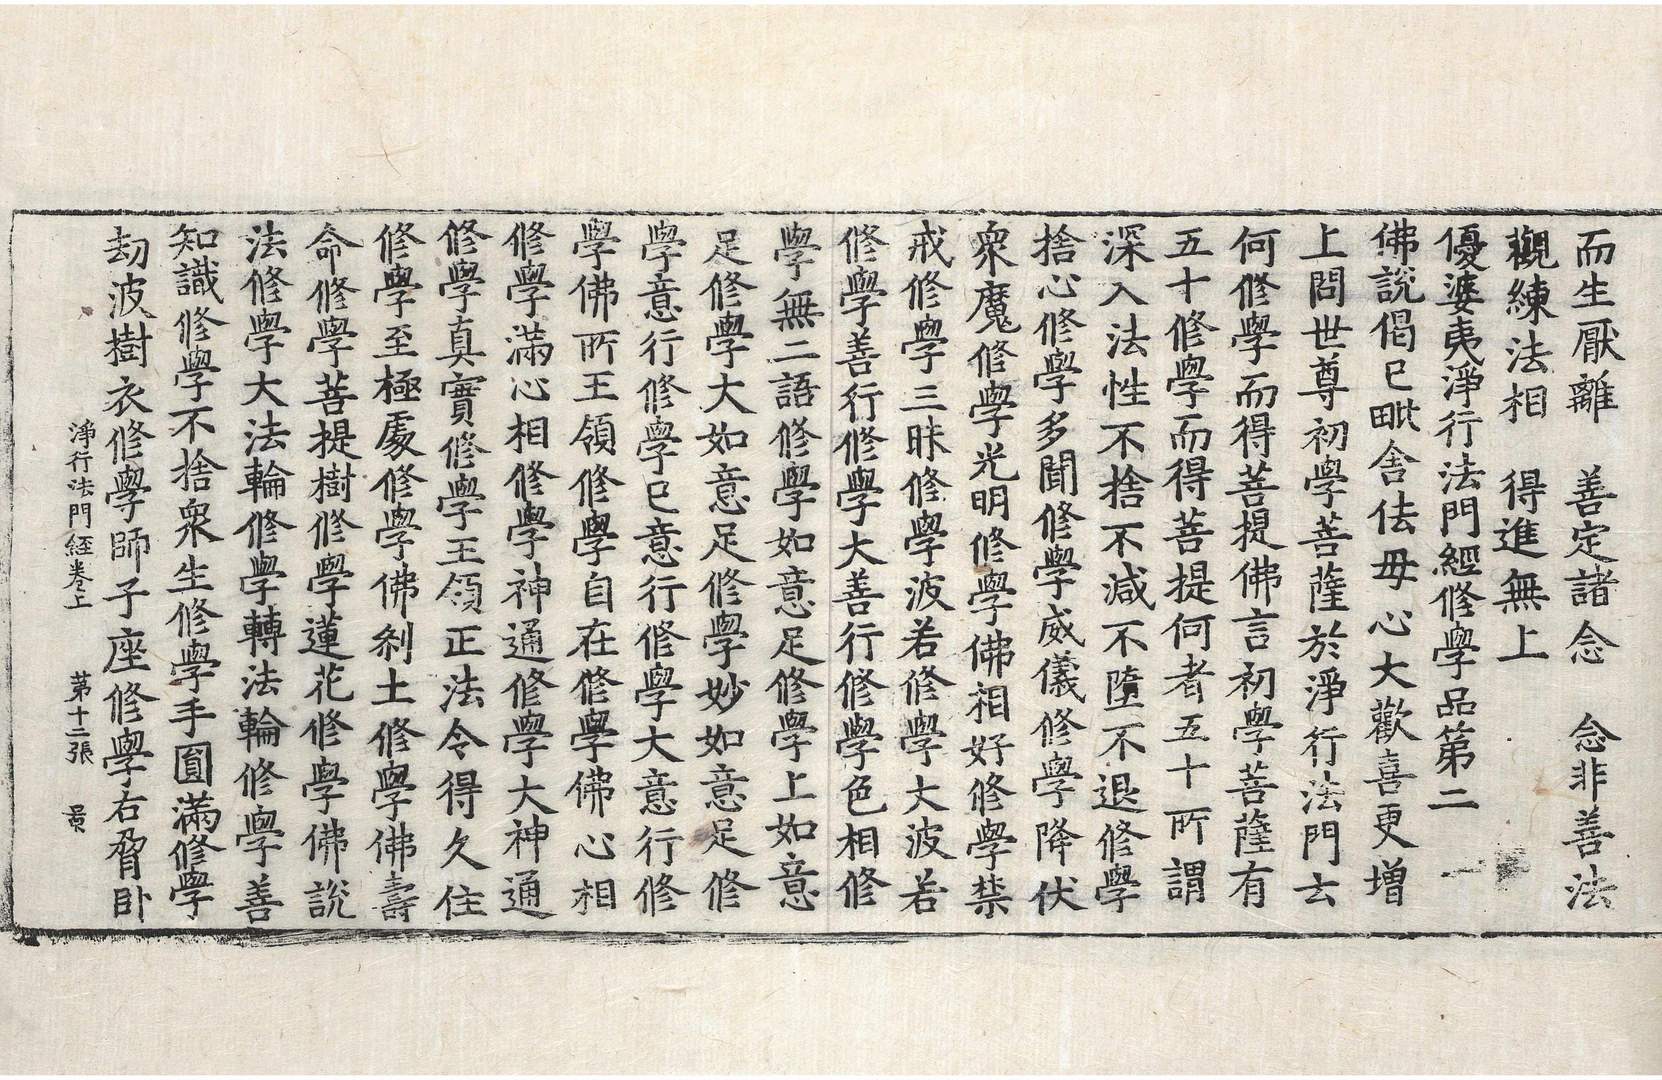 而生厭離　善定諸念　念非善法
觀練法相　得進無上
優婆夷淨行法門經修學品第二　一
佛說偈已毗舍佉毋心大歡喜更增
上問世尊初學菩薩於淨行法門云
何修學而得菩提佛言初學菩薩有
五十修學而得菩提何者五十所謂
深入法性不捨不減不墮不退修學
捨心修學多聞修學威儀修學降伏
衆魔修學光明修學佛相好修學禁
戒修學三昧修學波若修學大波若
修學善行修學大善行修學色相修
學無二語修學如意足修學上如意
足修學大如意足修學妙如意足修
學意行修學已意行修學大意行修
學佛所王領修學自在修學佛心相
修學滿心相修學神通修學大神通
修學真實修學王領正法令得久住
修學至極處修學佛剎土修學佛壽
命修學菩提樹修學蓮花修學佛說
法修學大法輪修學轉法輪修學善
知識修學不捨衆生修學手圓滿修學
劫波樹衣修學師子座修學右脅臥
淨行法門經卷上　第十二張